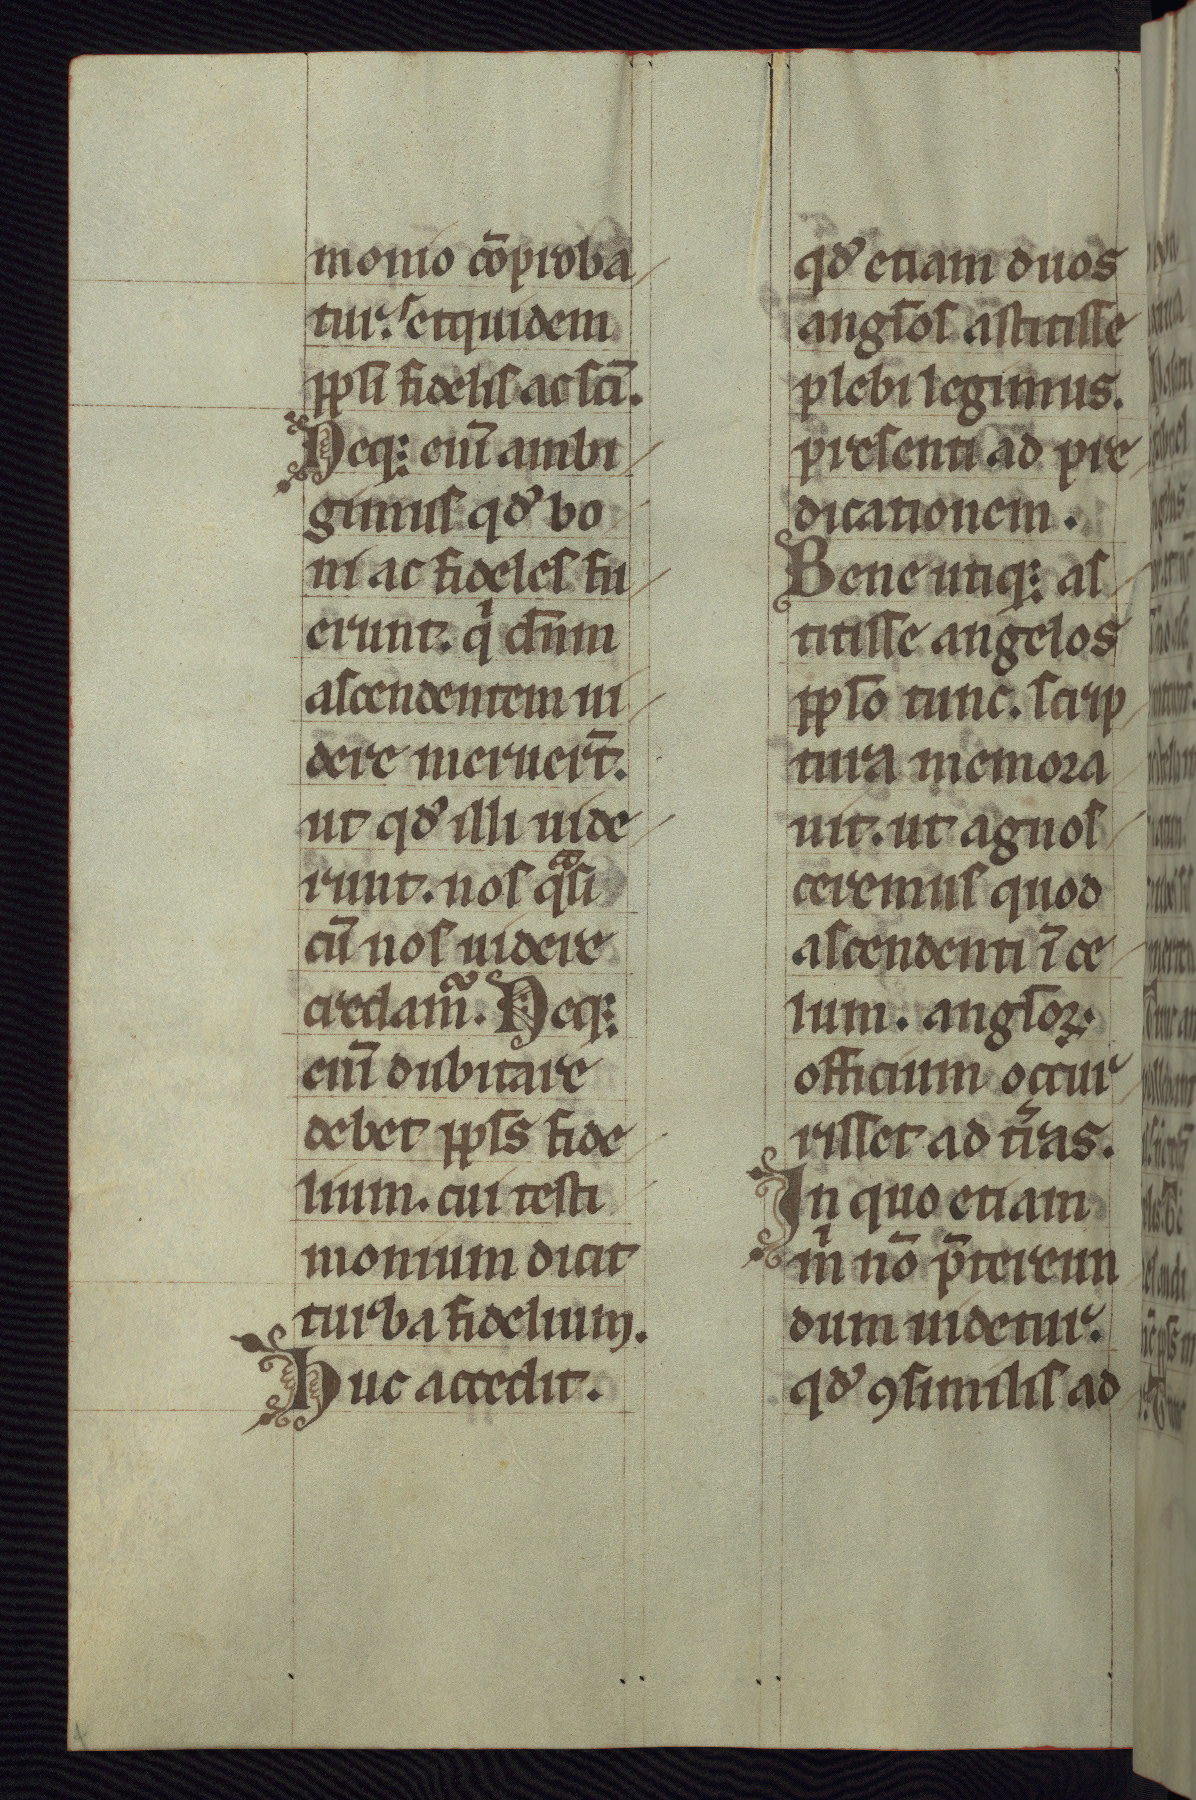 monio cōproba
tur. et quidem
ppl̄i fidelis ac sc̄i.
Neq; eni̅ ambi
gimus qd̕ bo
ni ac fideles fu
erunt. qⁱ dn̄m
ascendentem ui
dere meruer̄t.
ut qd̕ illi uide
runt. nos qᵃsi
cu̅ nos uidere
credam̕. Neq;
eni̅ dubitare
debet ppl̄s fide
lium. cui testi
monium dicit
turba fidelium.
Huc accedit.
qd̕ etiam duos
angl̄os astitisse
plebi legimus.
presenti ad pre
dicationem.
Bene utiq; as
titisse angelos
ppl̄o tunc. scrip
tura memora
uit. ut agnos
ceremus quod
ascendenti i̅ ce
lum. angl̄oꝝ
officium occur
risset ad tr̄as.
In quo etiam
mⁱ nō p̄tereun
dum uidetur.
qd̕ ꝯsimilis ad